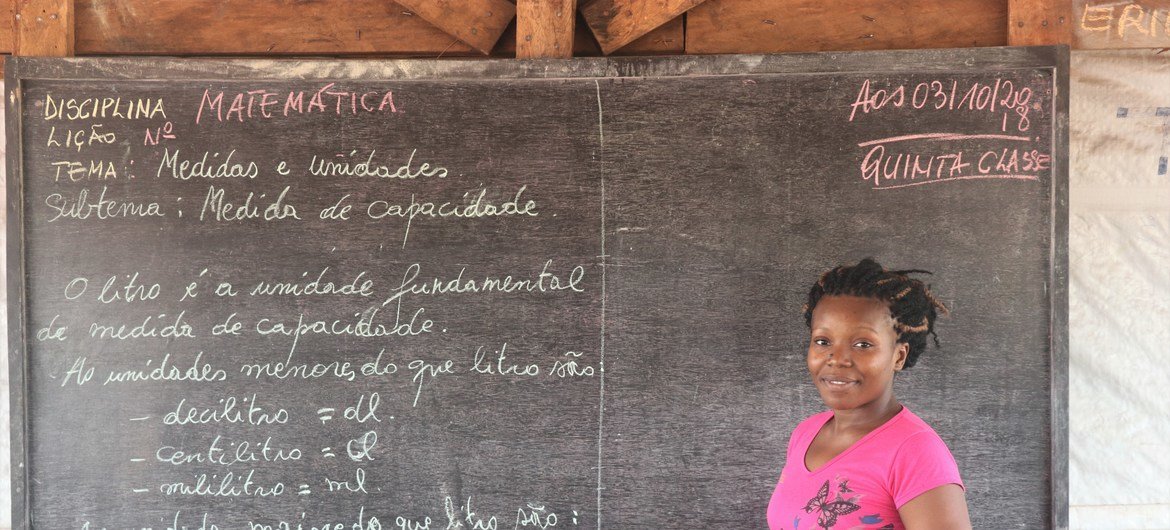 DISCIPLINA MATEMÁTICA
LIÇÃO Nº
TEMA: Medidas e unidades.
Subtema: Medida de capacidade.
O litro é a unidade fundamental
de medida de capacidade.
As unidades menores do que litro são:
- decilitro = dl.
- centilitro = cl
- mililitro = ml.
do que litro são:
Aos 03/10/20
18
QUINTA CLASSE